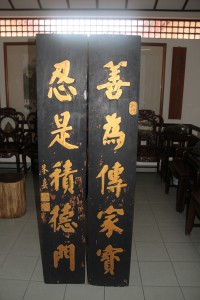 善為傳家寶
忍是積德門